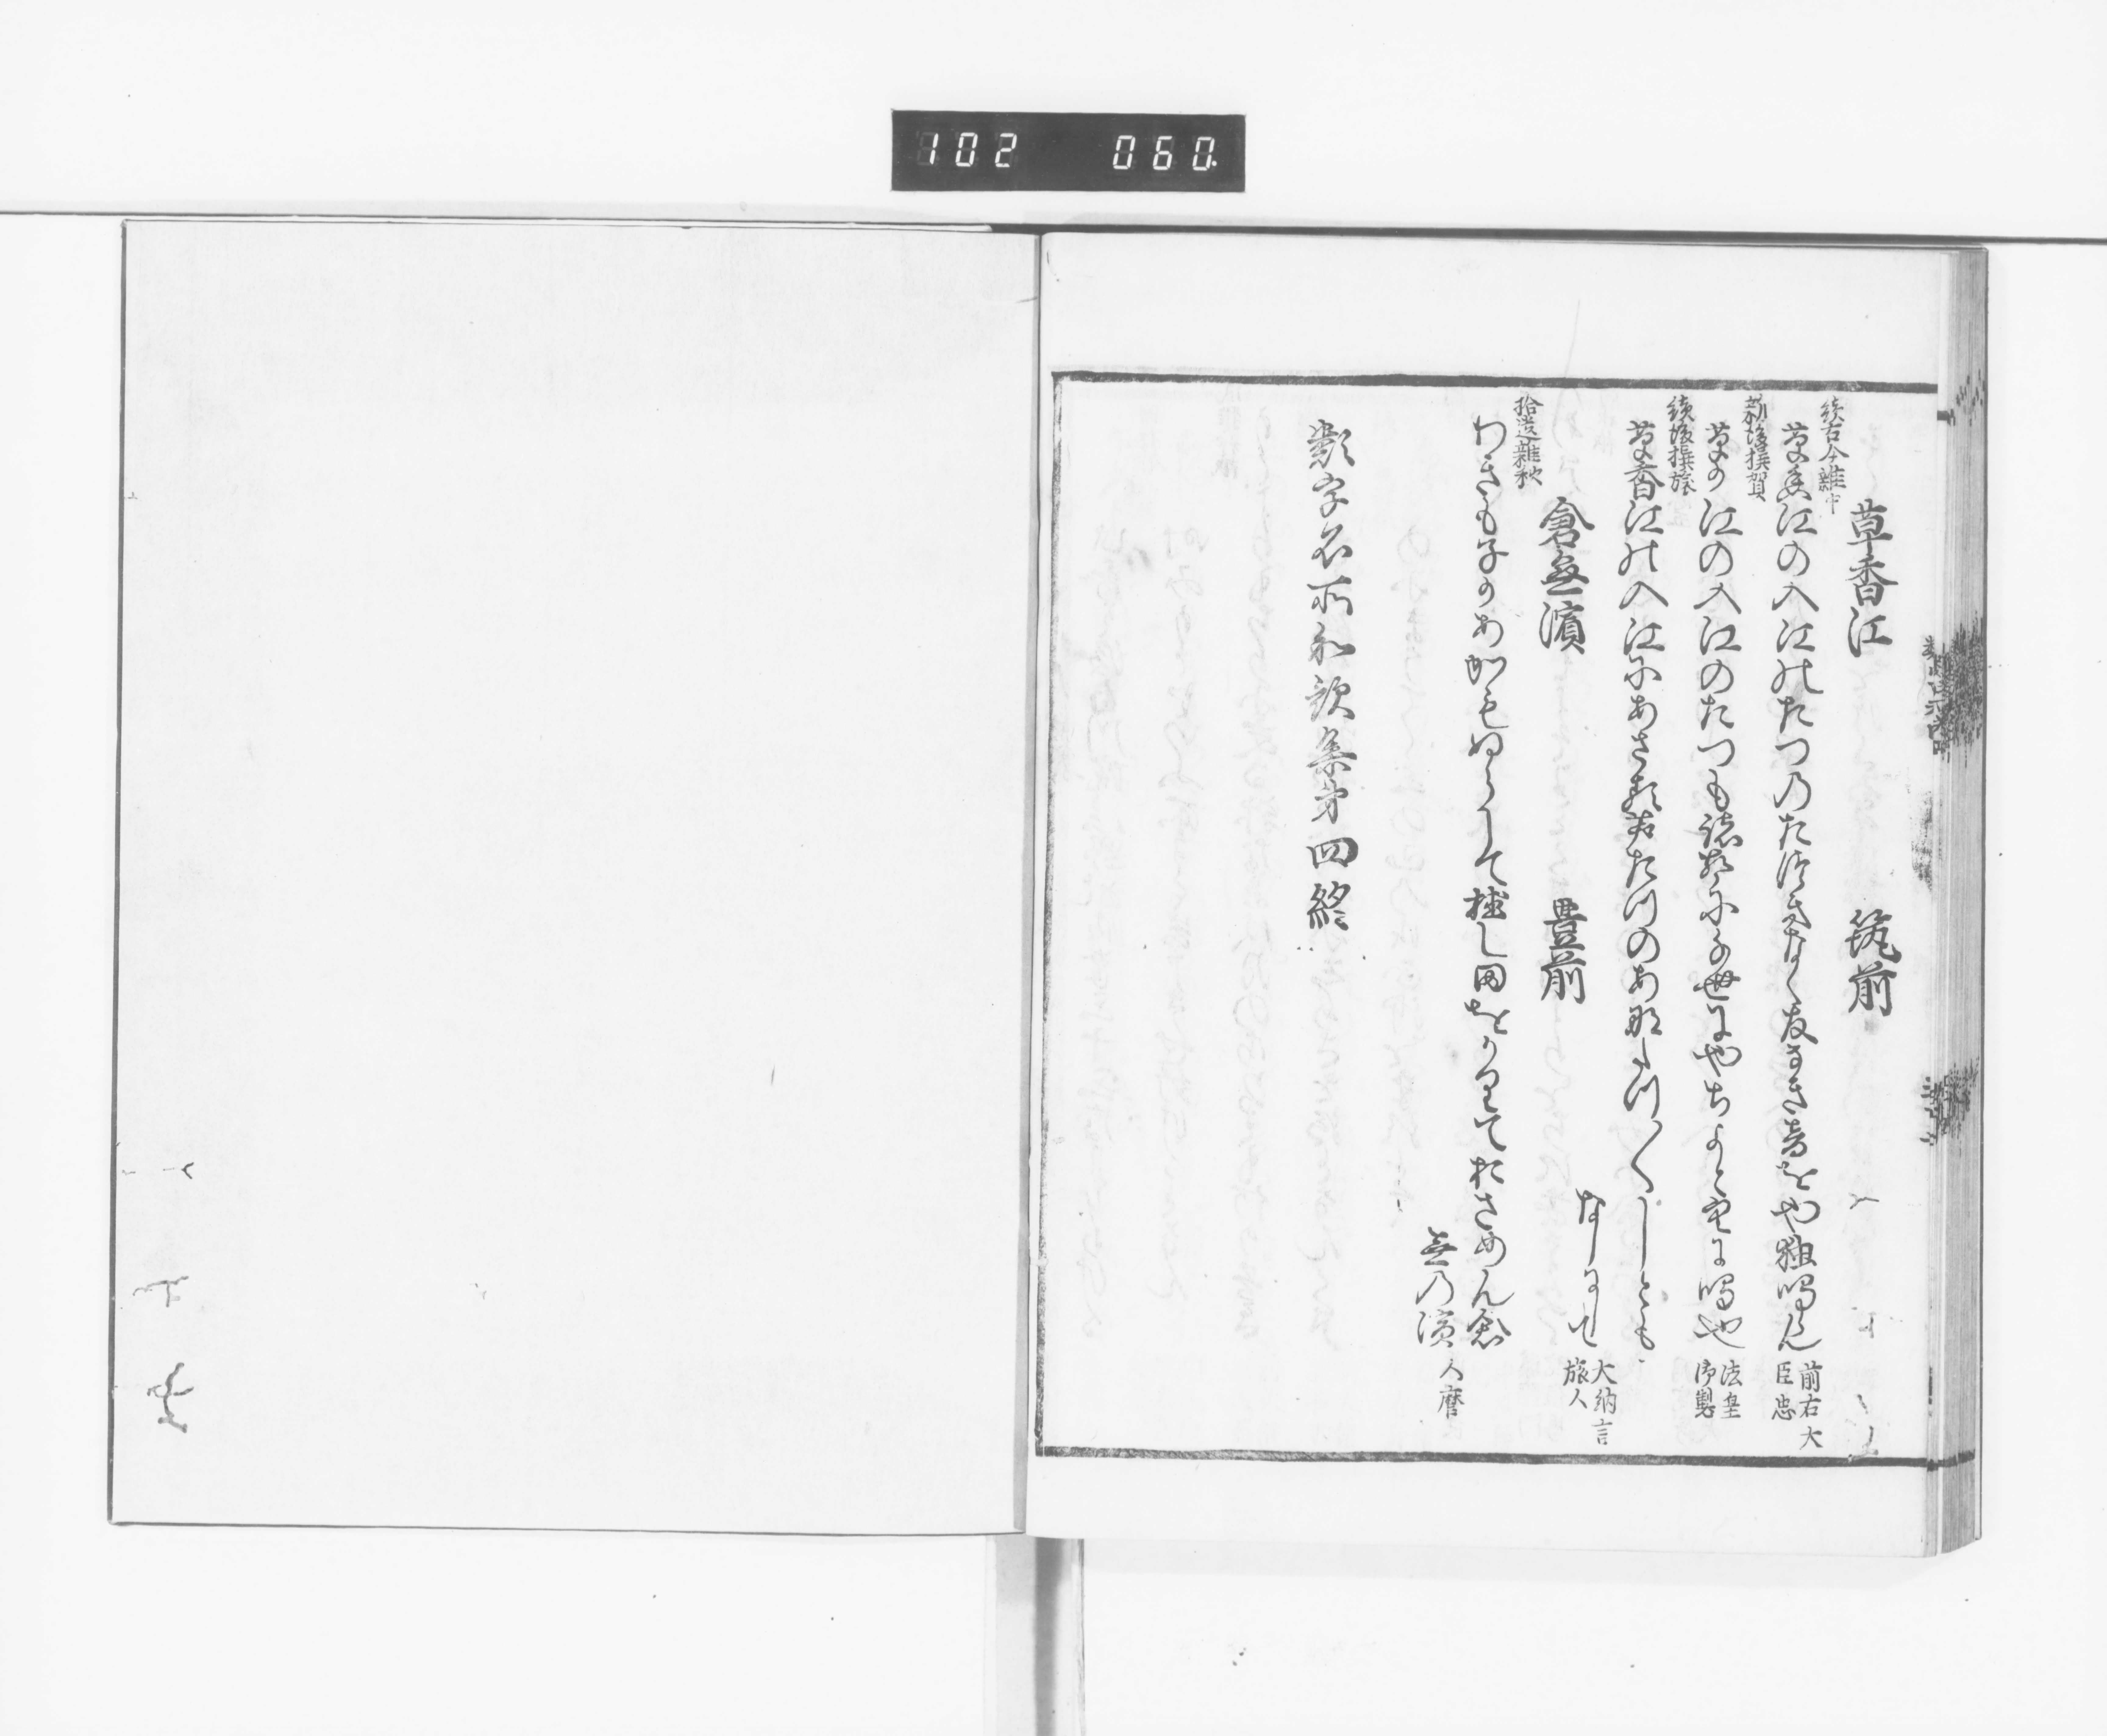 102 060
草香江 筑前
続古今雑中
草香江の入江のたつのたつきなく友なき音をや独鳴らん 前右大臣忠
新後撰賀
草か江の入江のたつも諸声に千世にやちよと空に鳴也 法皇御製
続後撰旅
草香江の入江にあさるあしたつのあなたつ〳〵しとも
なしにして 大納言旅人
倉無濱 豊前
拾遺雑秋
わきも子かあかもぬらして植し田をかりておさめん倉
無乃濱 人麿
類字名所和歌集第四終